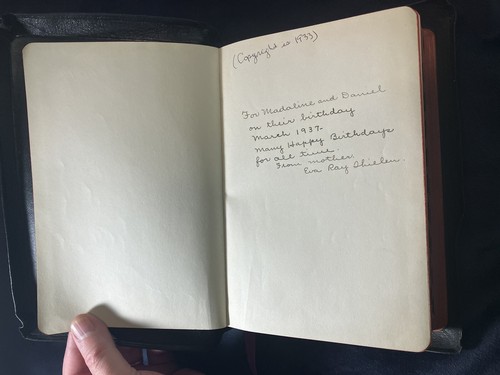 (Copyright is 1933)
For Madaline and Daniel
on their birthday
March 1937.
Many Happy Birthdays
for all time.
From mother.
Eva Ray Thielen.